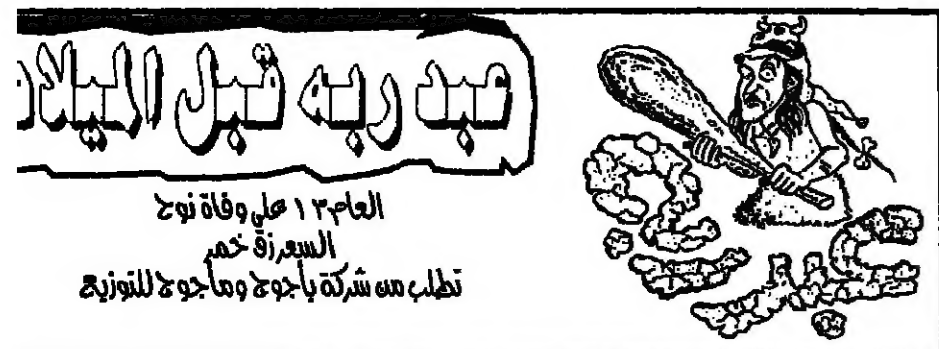 عبد ربه قبل الميلاد
العام ١٣ علي وفاة نوح
السعر زق خمر
تطلب من شركة يأجوج ومأجوج للتوزيع